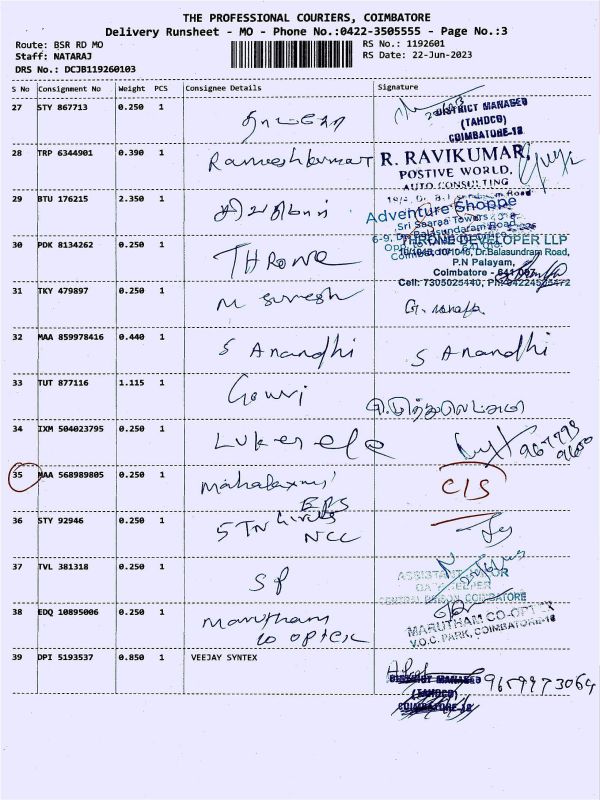 THE PROFESSIONAL COURIERS, COIMBATORE
Delivery Runsheet - MO - Phone No.:0422-3505555 - Page No.:3
Route: BSR RD MO
Staff: NATARAJ
DRS No.: DCJB119260103
RS No.: 1192601
RS Date: 22-Jun-2023
S No Consignment No Weight PCS Consignee Details Signature
27 STY 867713 0.250 1
DISTRICT MANAGER
(TAHDCO)
COIMBATORE-18
28 TRP 6344901 0.390 1 Rameshkumar
R. RAVIKUMAR,
POSTIVE WORLD,
AUTO CONSULTING
29 BTU 176215 2.350 1
Adventure Shoppe
Sri Saaraa Towers
30 PDK 8134262 0.250 1 THRONE
THRONE DEVELOPER LLP
Dr.Balasundram Road,
P.N Palayam,
Coimbatore - 641 037.
Cell: 7305025440,
31 TKY 479897 0.250 1 M Suresh
32 MAA 859978416 0.440 1 S Anandhi S Anandhi
33 TUT 877116 1.115 1 Gowri
34 IXM 504023795 0.250 1
35 MAA 568989805 0.250 1 Mahalaxmi CIS
36 STY 92946 0.250 1 5 TN
NCC
37 TVL 381318 0.250 1 SP
CENTRAL PRISON, COIMBATORE
38 EDQ 10895006 0.250 1 Marutham
Co optex
MARUTHAM CO-OPTEX
V.O.C. PARK, COIMBATORE-18
39 DPI 5193537 0.850 1 VEEJAY SYNTEX
DISTRICT MANAGER 9659973064
(TAHDCO)
COIMBATORE-18